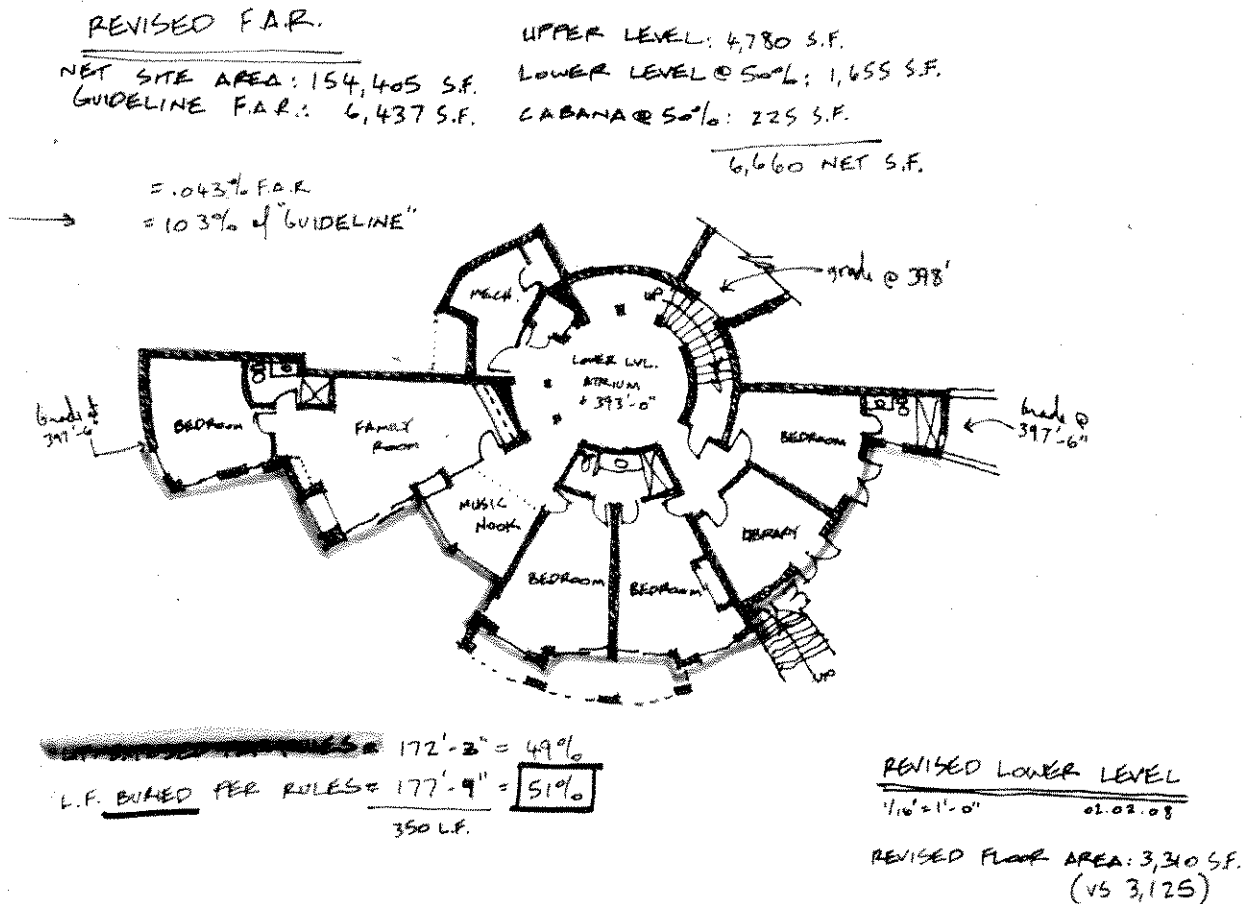 REVISED F.A.R.
NET SITE AREA: 154,405 S.F.
GUIDELINE F.A.R.: 6,437 S.F.
UPPER LEVEL: 4,780 S.F.
LOWER LEVEL @ 50%: 1,655 S.F.
CABANA @ 50%: 225 S.F.
6,660 NET S.F.
= .043% F.A.R
= 103% of "GUIDELINE"
grade @ 398'
MECH.
UP
LOWER LVL.
ATRIUM
393'-0"
Grade @
397'-6"
BEDROOM
FAMILY
ROOM
BEDROOM
Grade @
397'-6"
MUSIC
NOOK
LIBRARY
BEDROOM
BEDROOM
UP
172'-3" = 49%
L.F. BURIED PER RULES = 177'-9" = 51%
350 L.F.
REVISED LOWER LEVEL
1/16" = 1'-0" 02.02.08
REVISED FLOOR AREA: 3,310 S.F.
(VS 3,125)